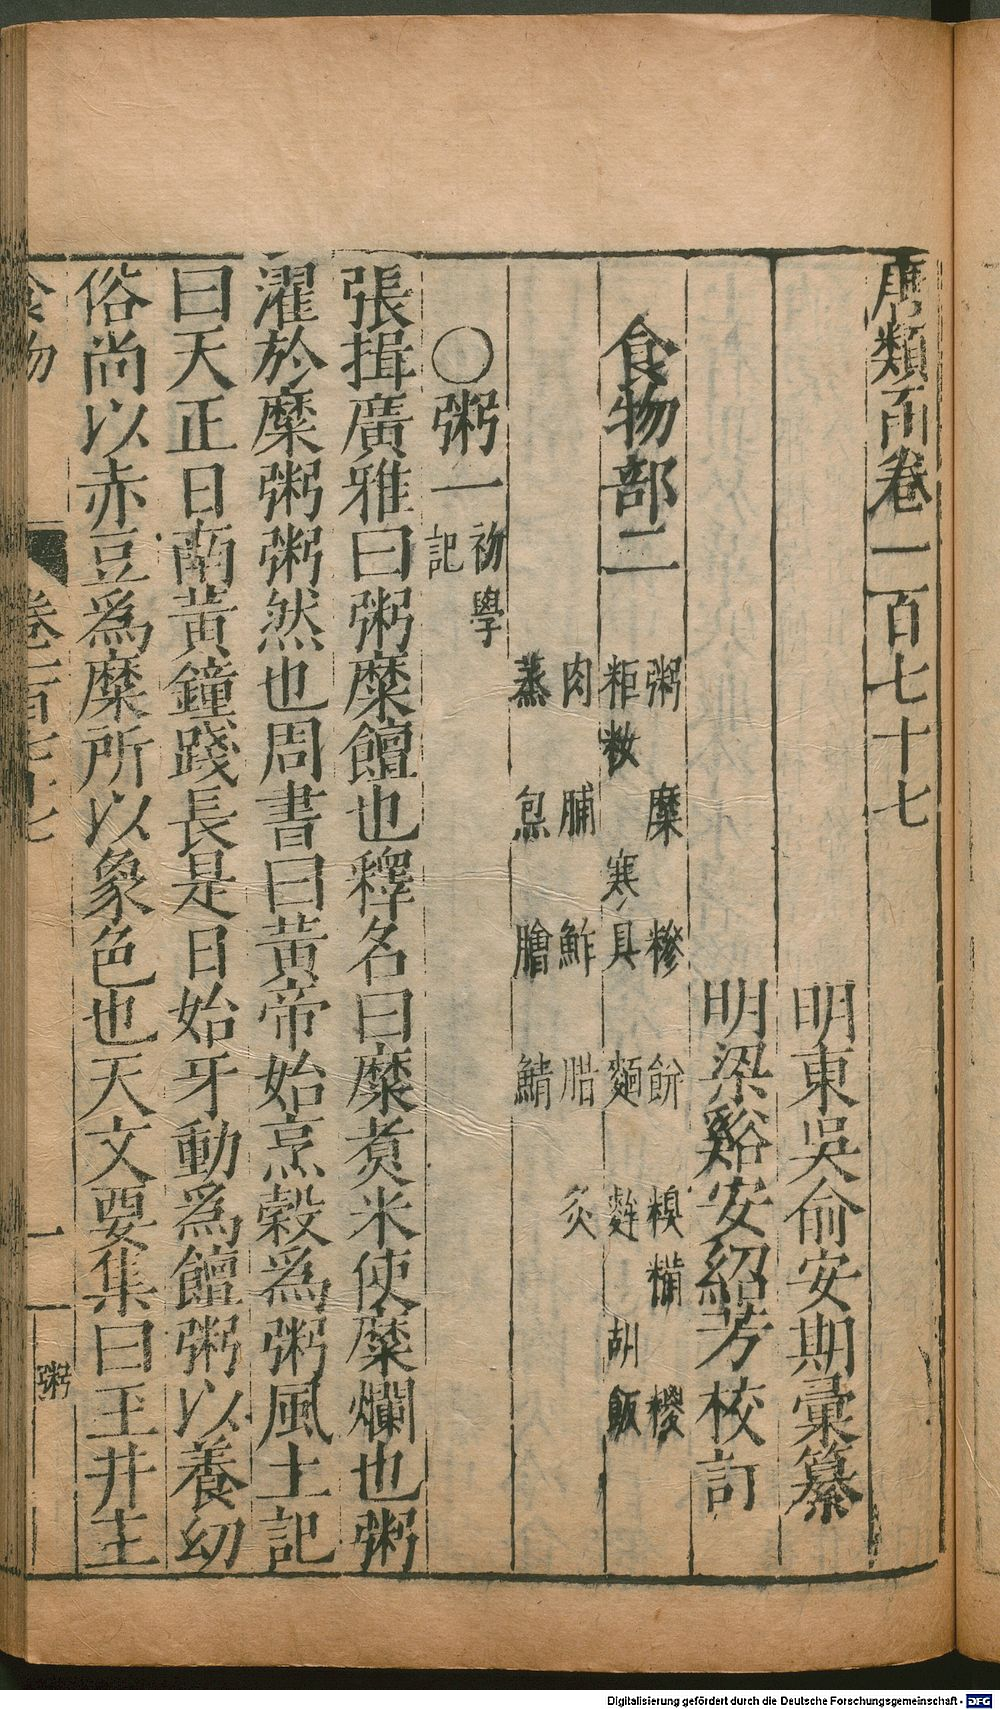 唐類函卷一百七十七
明東吳俞安期彙纂
明梁谿安紹芳校訂
食物部二
粥 糜 糝 餅 糗糒 糉
粔籹 寒具 麵 麰 胡飯
肉 脯 鮓 腊 炙
蒸 炰 膾 鯖
〇粥一
初學
記
張揖廣雅曰粥糜饘也釋名曰糜煑米使糜爛也粥
濯於糜粥粥然也周書曰黃帝始烹穀爲粥風土記
曰天正日南黃鐘踐長是日始牙動爲饘粥以養幼
俗尚以赤豆爲糜所以象色也天文要集曰玉井主
食物
卷一百七十七
一
粥
Digitalisierung gefördert durch die Deutsche Forschungsgemeinschaft - DFG